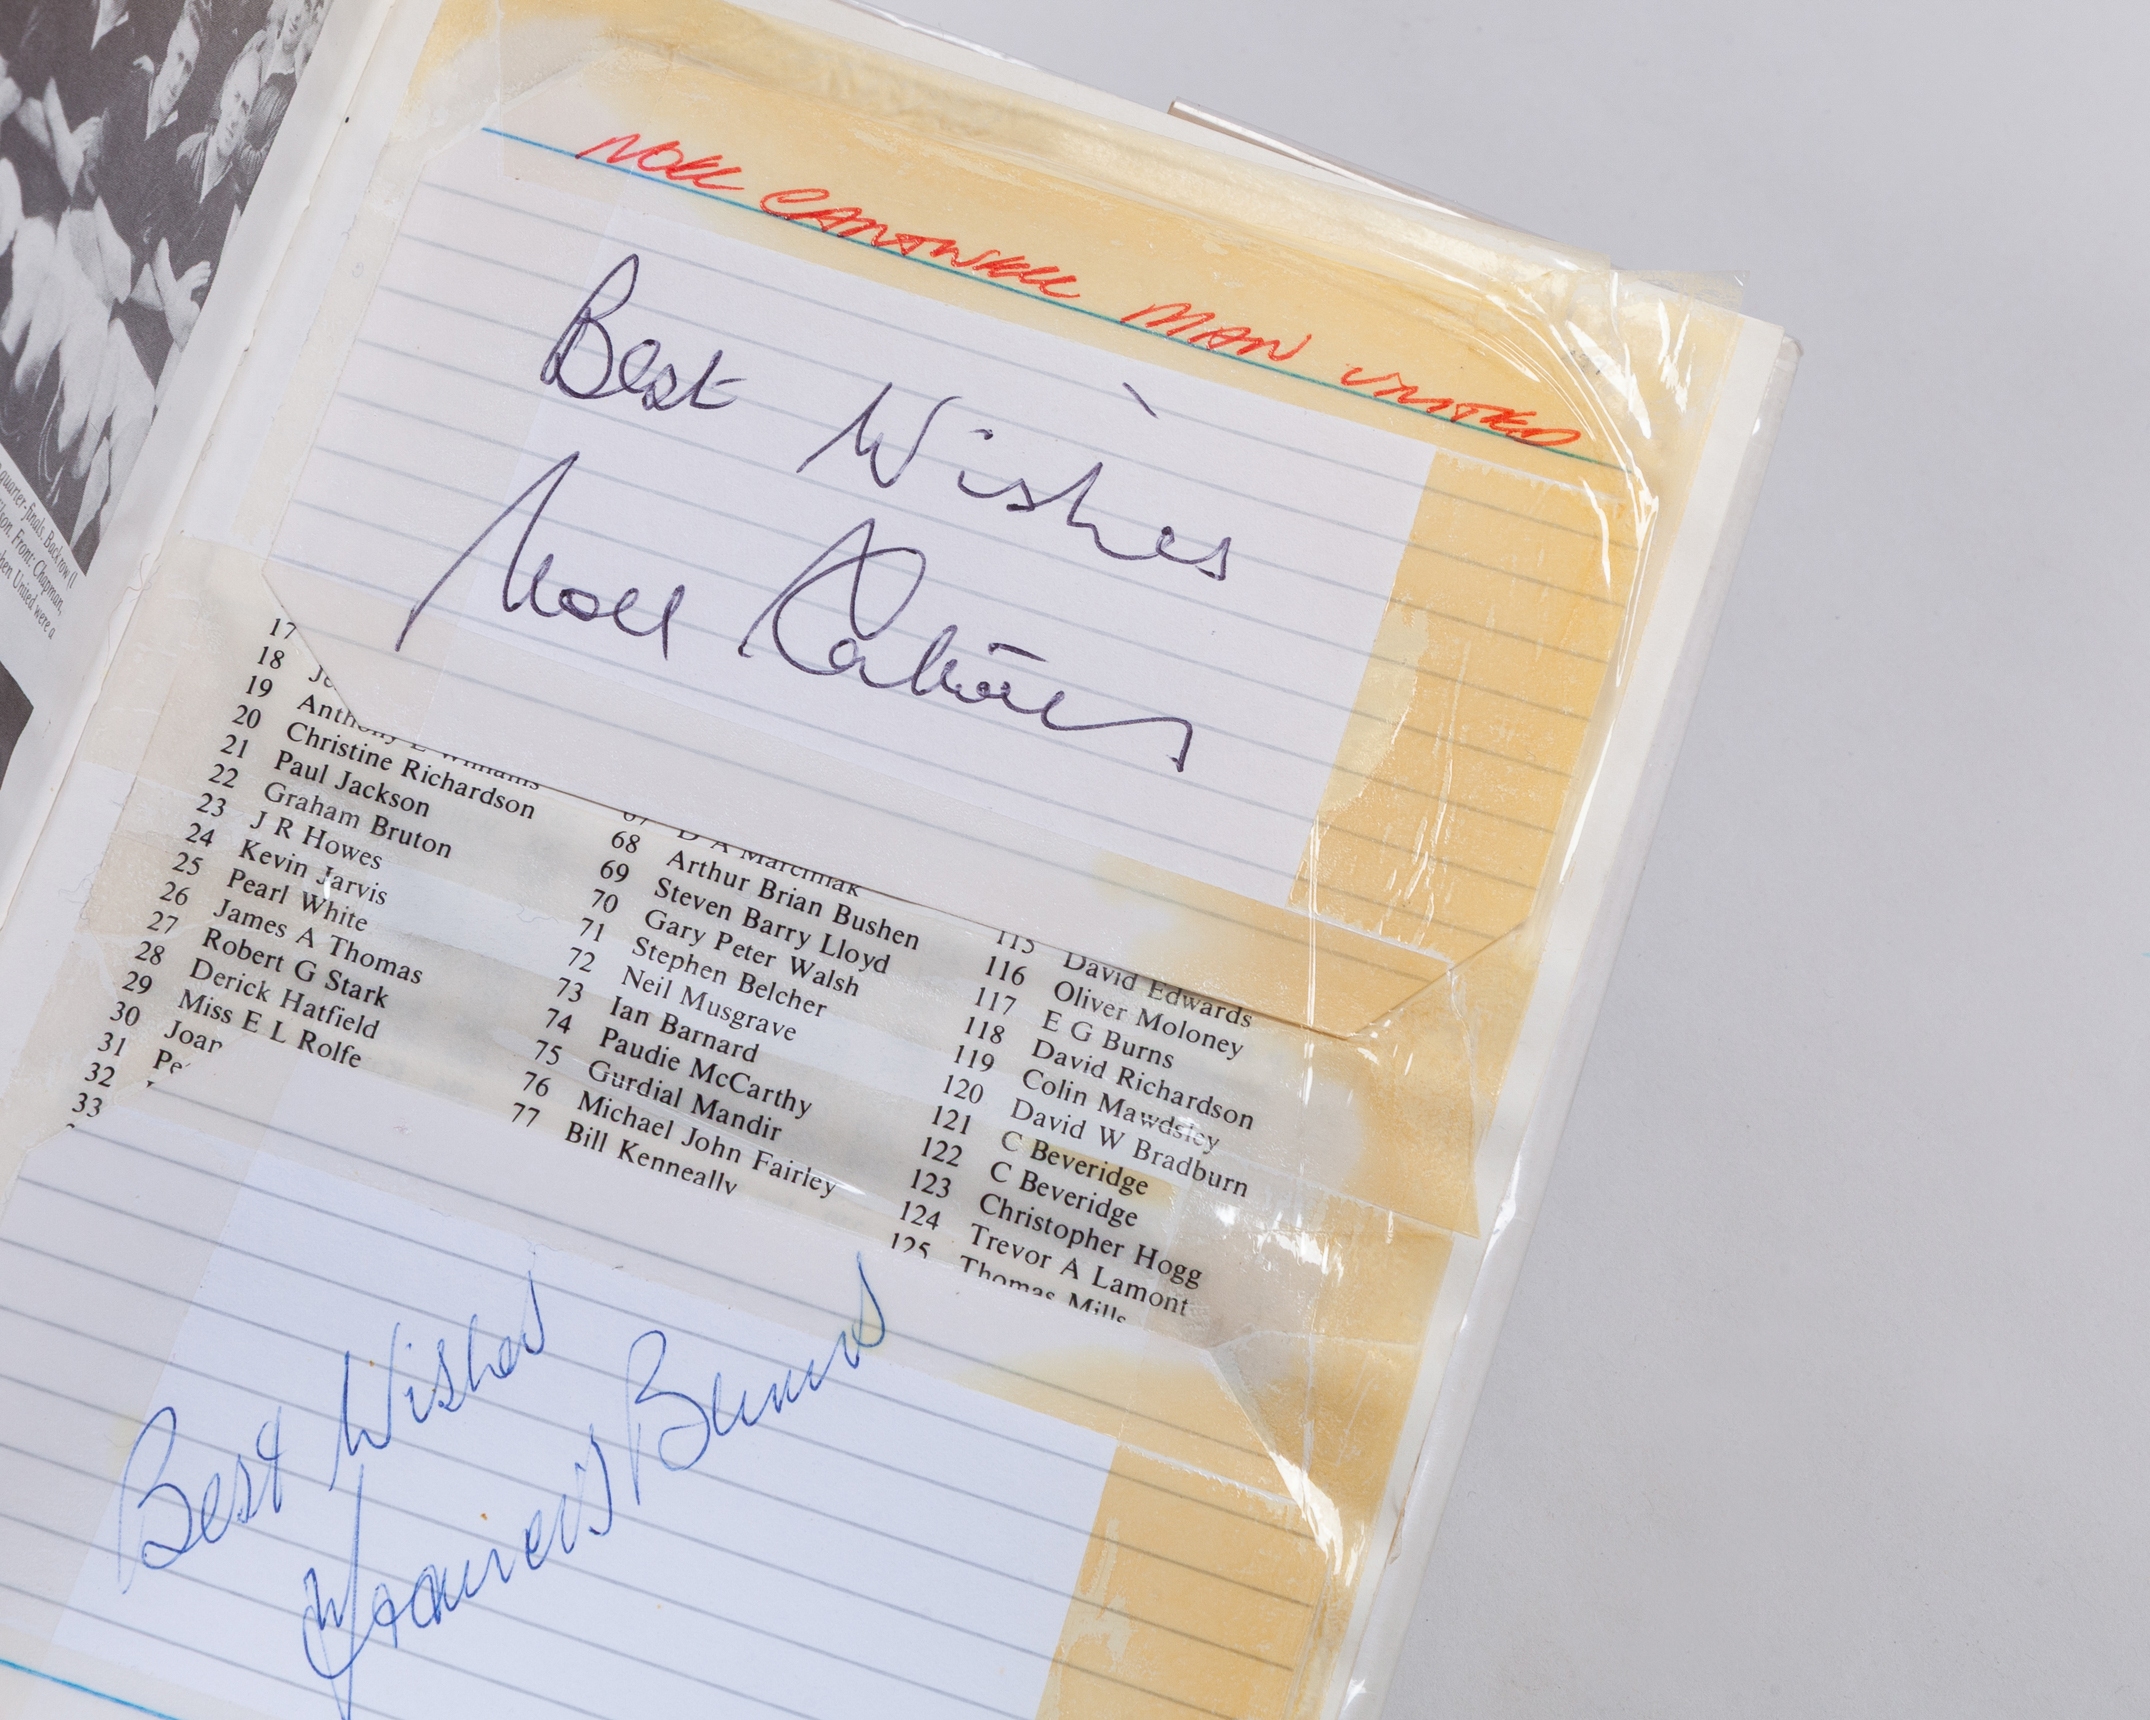 quarter-finals. Back row (l
Front: Chapman,
United were a
NOEL CANTWELL MAN UNITED
Best Wishes
Noel Cantwell
17
18
19 Anthony E Williams
20 Christine Richardson
21 Paul Jackson
22 Graham Bruton
23 J R Howes
24 Kevin Jarvis
25 Pearl White
26 James A Thomas
27 Robert G Stark
28 Derick Hatfield
29 Miss E L Rolfe
30
31
32
33
67 D A Marciniak
68 Arthur Brian Bushen
69 Steven Barry Lloyd
70 Gary Peter Walsh
71 Stephen Belcher
72 Neil Musgrave
73 Ian Barnard
74 Paudie McCarthy
75 Gurdial Mandir
76 Michael John Fairley
77 Bill Kenneally
115 David Edwards
116 Oliver Moloney
117 E G Burns
118 David Richardson
119 Colin Mawdsley
120 David W Bradburn
121 C Beveridge
122 C Beveridge
123 Christopher Hogg
124 Trevor A Lamont
125 Thomas Mills
Best Wishes
Francis Burns